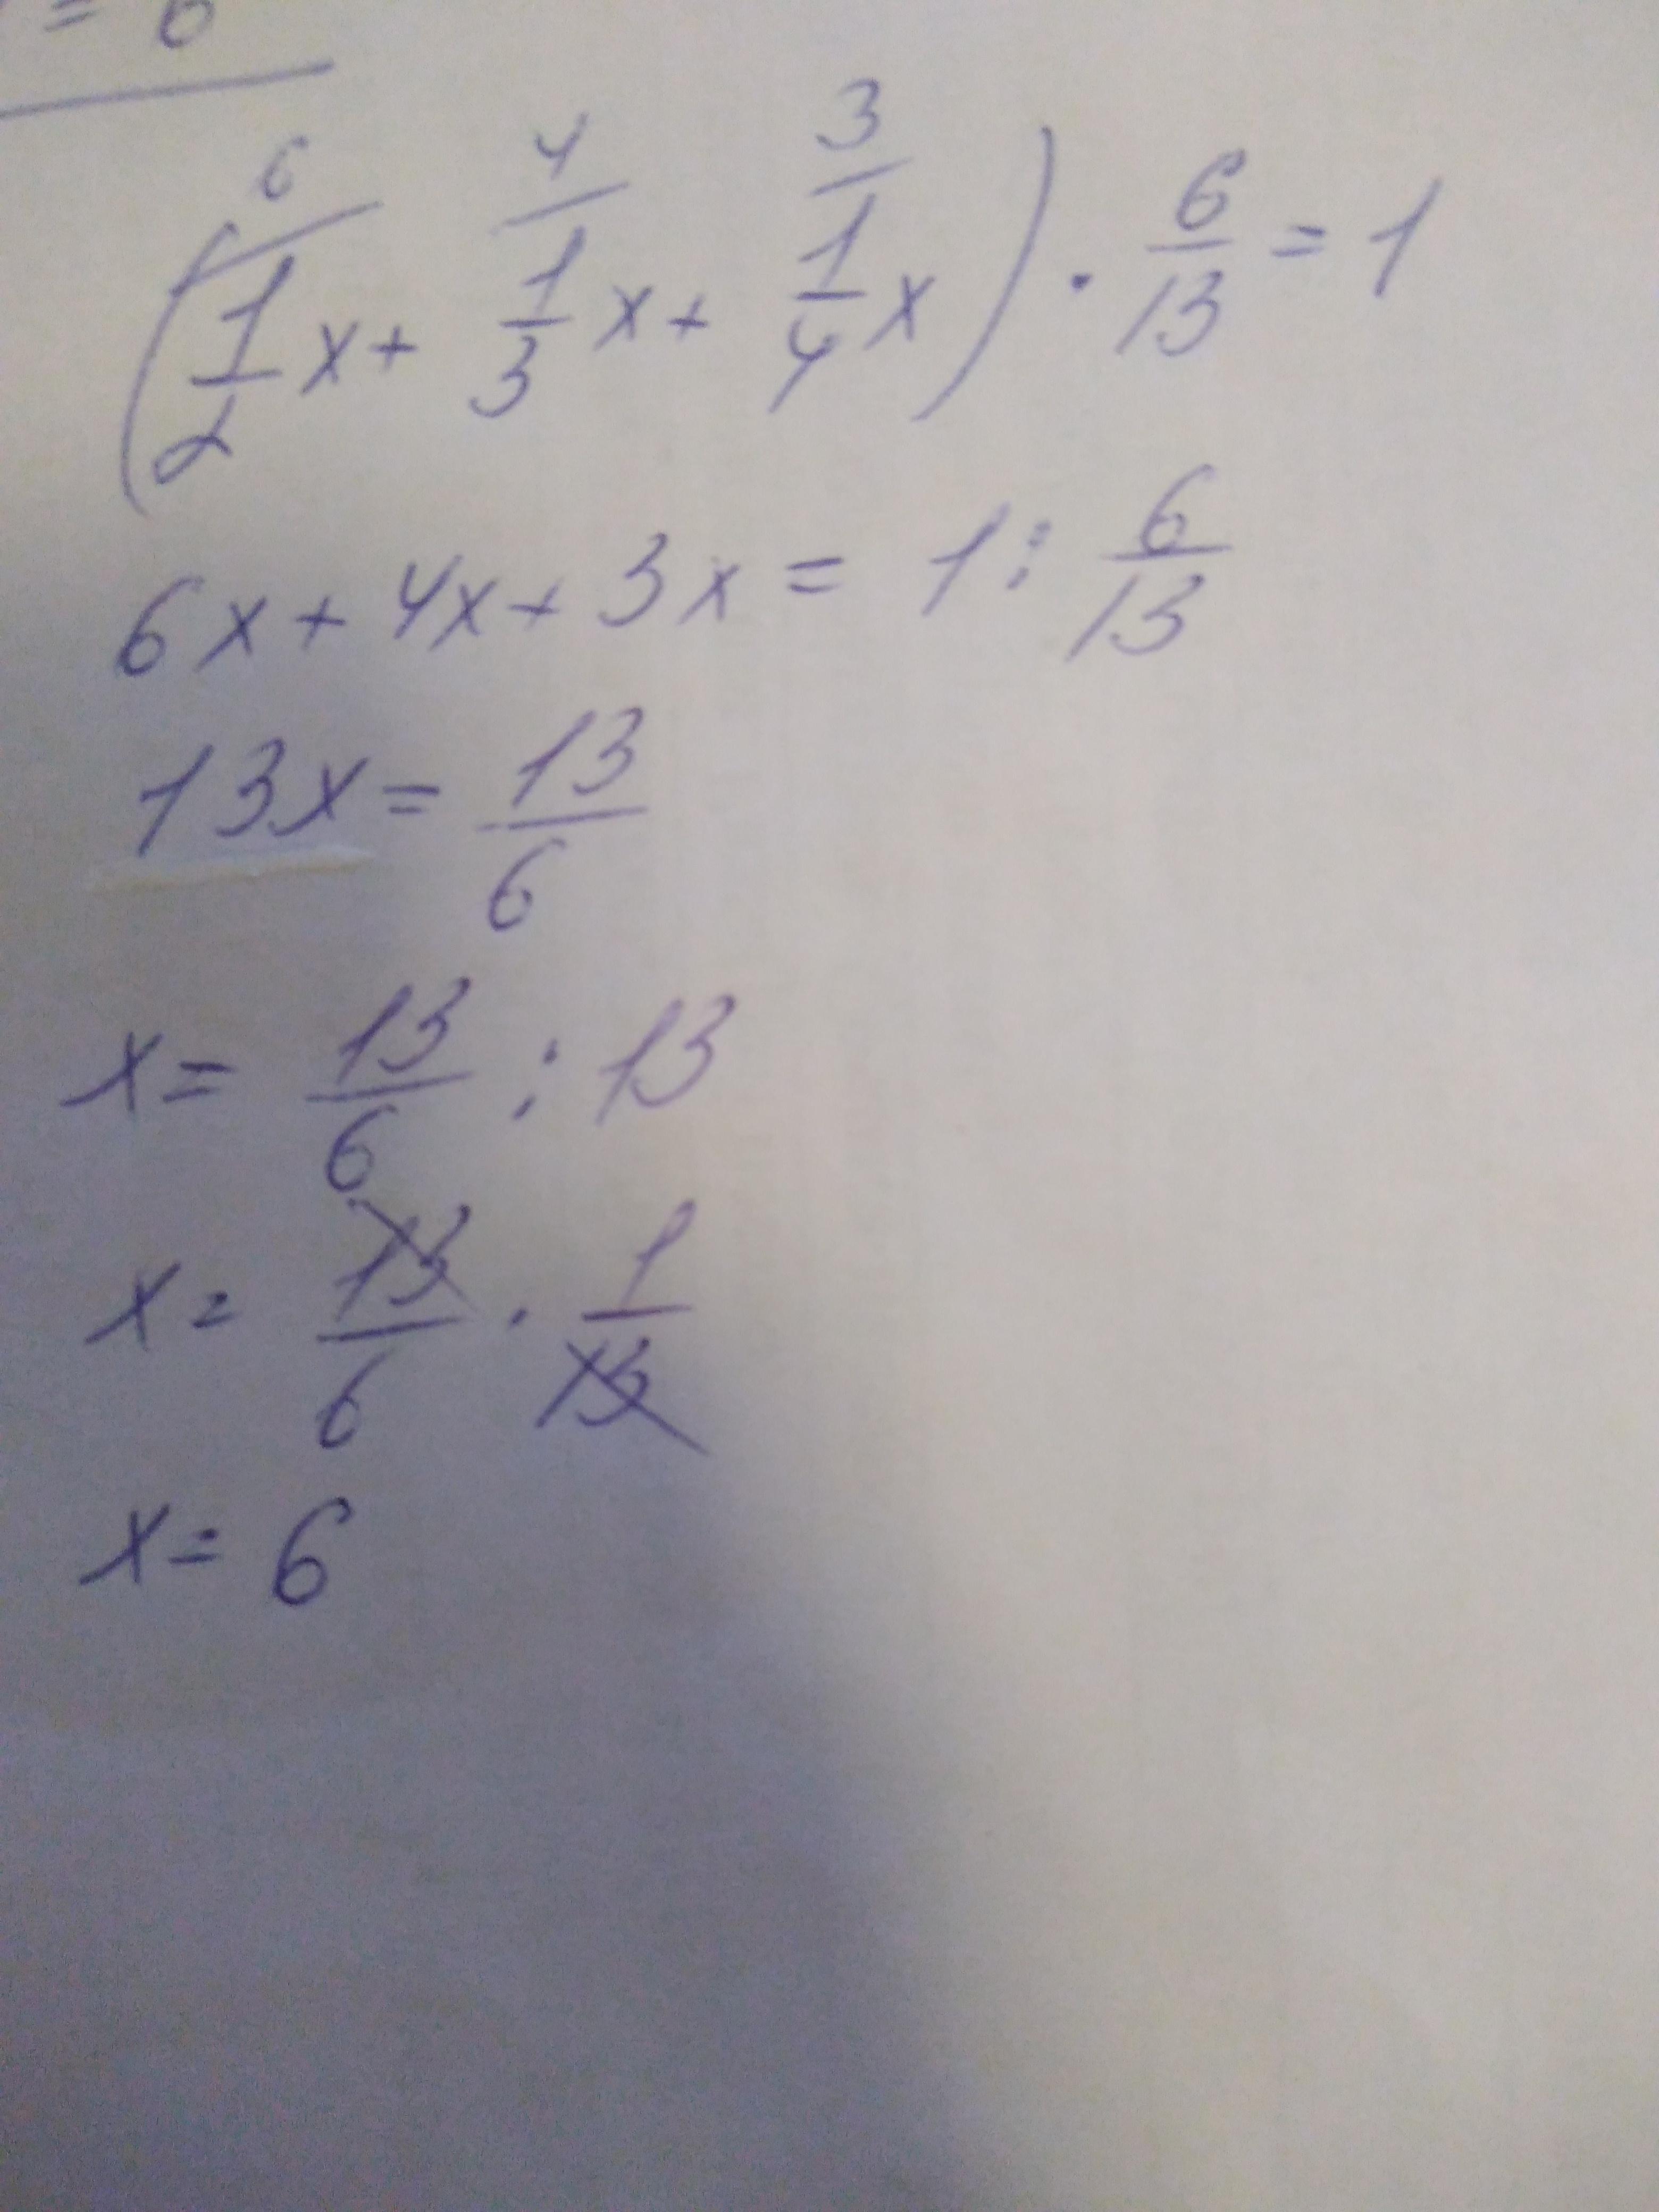 = 6
6 4 3
(1/2 x + 1/3 x + 1/4 x) · 6/13 = 1
6x + 4x + 3x = 1 : 6/13
13x = 13/6
x = 13/6 : 13
x = 13/6 · 1/13
x = 6